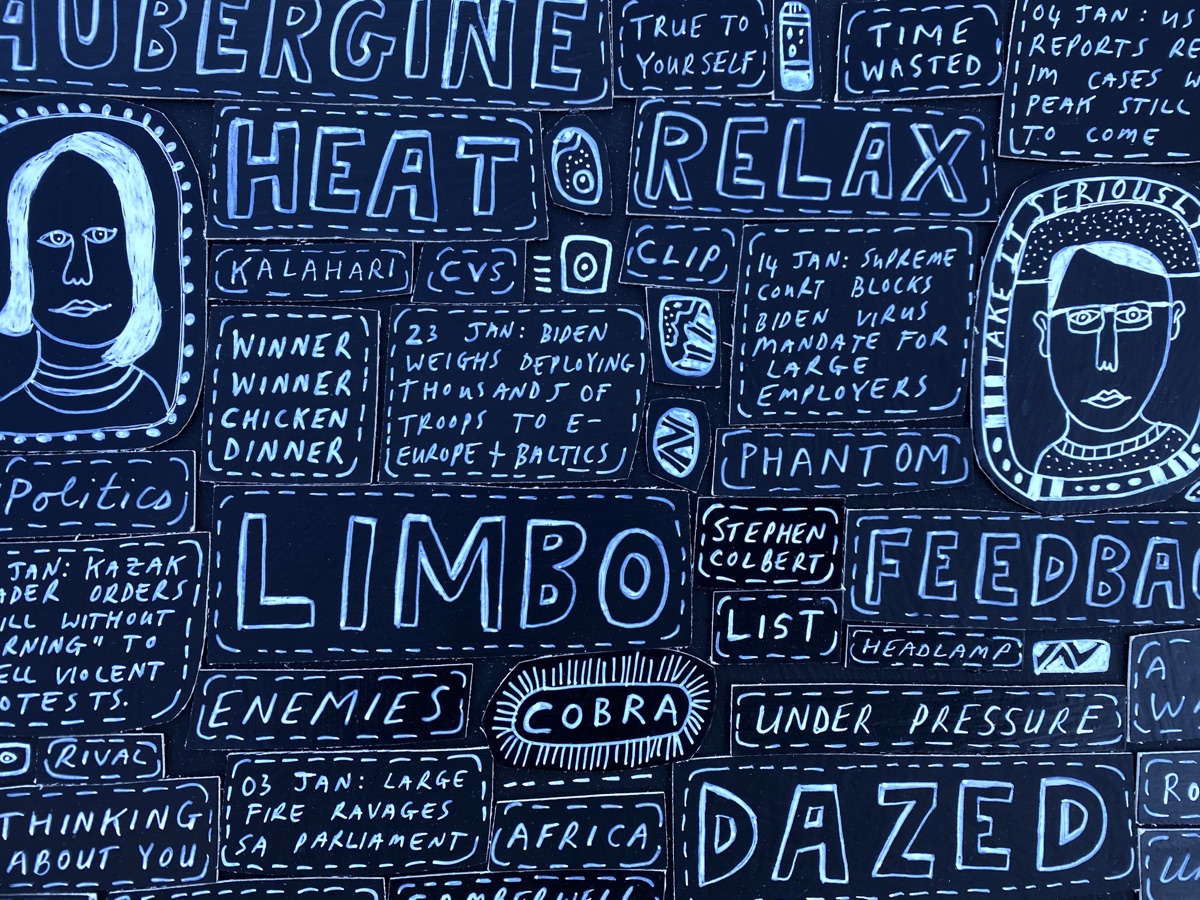 AUBERGINE
TRUE TO
YOURSELF
TIME
WASTED
04 JAN: US
REPORTS RE
1M CASES W
PEAK STILL
TO COME
HEAT
RELAX
KALAHARI
CVS
CLIP
14 JAN: SUPREME
COURT BLOCKS
BIDEN VIRUS
MANDATE FOR
LARGE
EMPLOYERS
TAKE IT SERIOUSL
WINNER
WINNER
CHICKEN
DINNER
23 JAN: BIDEN
WEIGHS DEPLOYING
THOUSANDS OF
TROOPS TO E-
EUROPE + BALTICS
PHANTOM
Politics
LIMBO
STEPHEN
COLBERT
FEEDBA
LIST
HEADLAMP
JAN: KAZAK
ADER ORDERS
ILL WITHOUT
RNING" TO
ELL VIOLENT
OTESTS.
ENEMIES
COBRA
UNDER PRESSURE
A
W
RIVAL
03 JAN: LARGE
FIRE RAVAGES
SA PARLIAMENT
THINKING
ABOUT YOU
AFRICA
DAZED
RO
CAMBERWELL